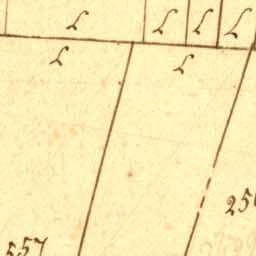 L L L L
L L
557